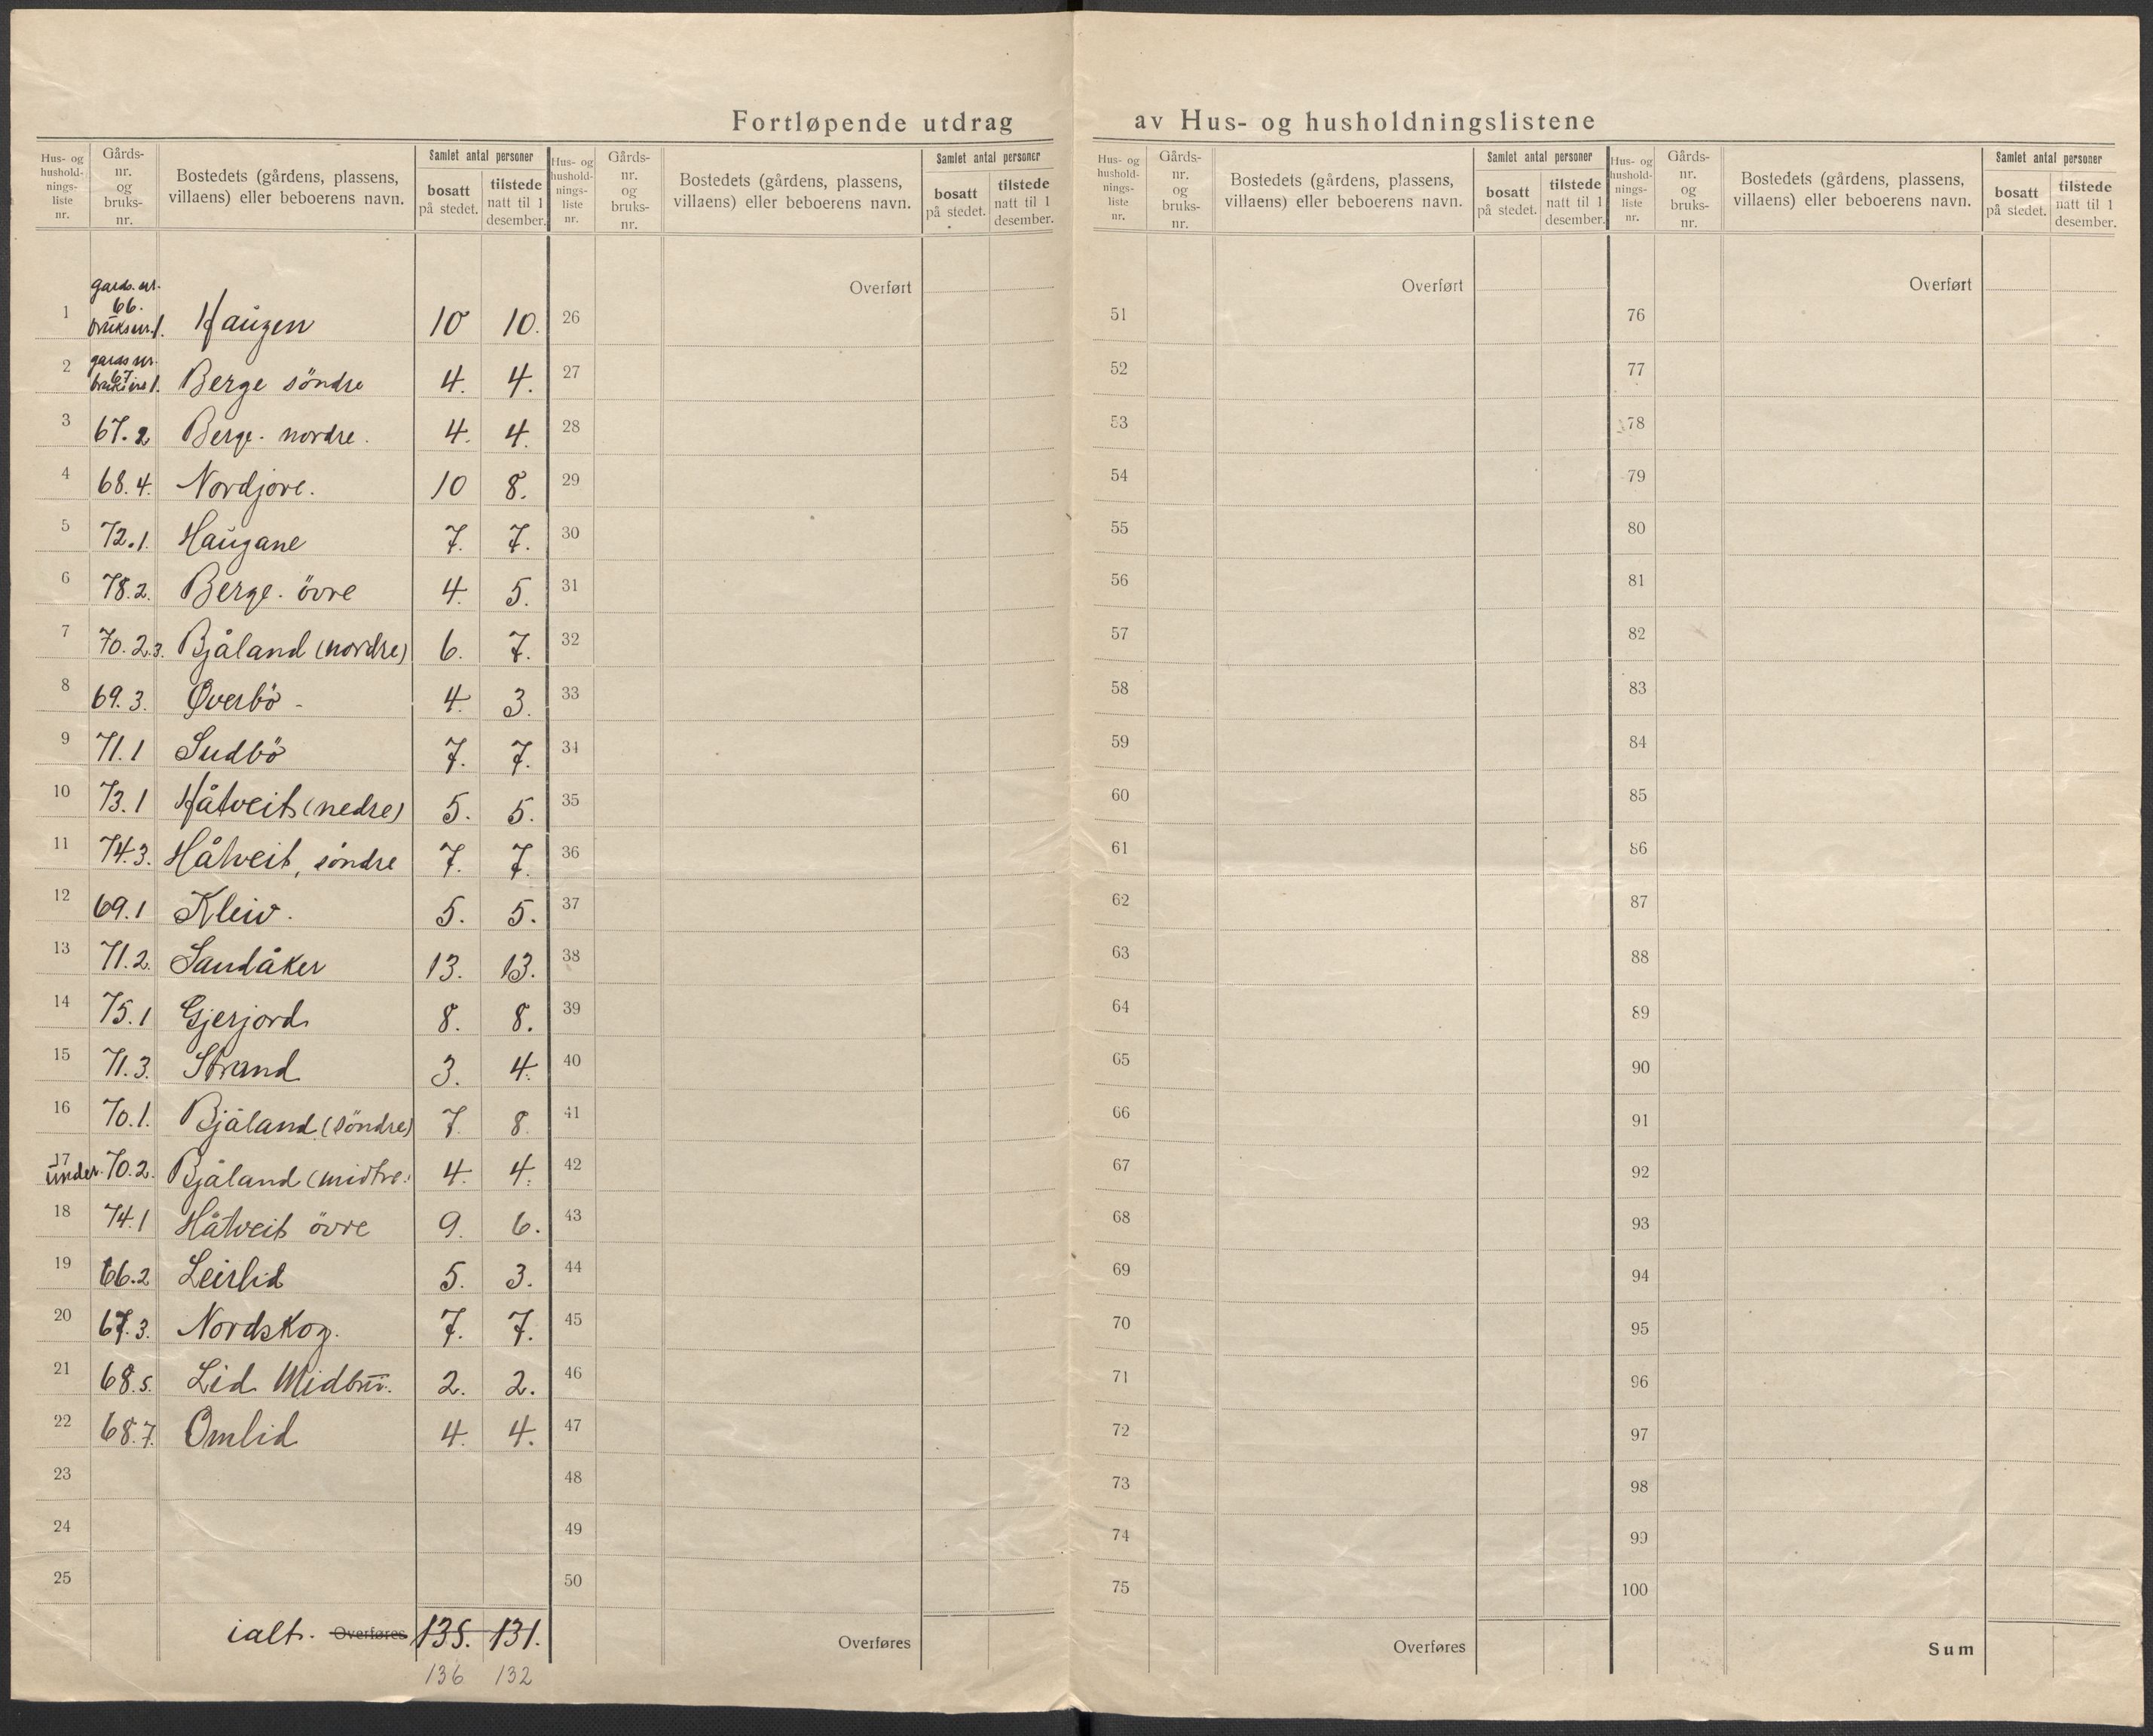 Fortløpende utdrag av Hus- og husholdningslistene
Hus- og hushold-nings-liste nr. Gårds-nr. og bruks-nr. Bostedets (gårdens, plassens, villaens) eller beboerens navn. Samlet antal personer bosatt på stedet. tilstede natt til 1 desember.
Hus- og hushold-nings-liste nr. Gårds-nr. og bruks-nr. Bostedets (gårdens, plassens, villaens) eller beboerens navn. Samlet antal personer bosatt på stedet. tilstede natt til 1 desember.
Hus- og hushold-nings-liste nr. Gårds-nr. og bruks-nr. Bostedets (gårdens, plassens, villaens) eller beboerens navn. Samlet antal personer bosatt på stedet. tilstede natt til 1 desember.
Hus- og hushold-nings-liste nr. Gårds-nr. og bruks-nr. Bostedets (gårdens, plassens, villaens) eller beboerens navn. Samlet antal personer bosatt på stedet. tilstede natt til 1 desember.
1 gards.nr. 66. bruksnr. 1. Haugen 10 10.
2 gards nr. 67 bruksnr 1. Berge söndre 4. 4.
3 67.2 Berge. nordre. 4. 4.
4 68.4. Nordjore. 10 8.
5 72.1. Haugane 7. 7.
6 78.2. Berge. övre 4. 5.
7 70.2.3. Bjåland (nordre) 6. 7.
8 69.3. Øverbö - 4. 3.
9 71.1 Sudbö 7. 7.
10 73.1 Håtveit (nedre) 5. 5.
11 74.3. Håtveit, söndre 7. 7.
12 69.1 Kleiv. 5. 5.
13 71.2. Sandåker 13. 13.
14 75.1 Gjerjord 8. 8.
15 71.3. Strand 3. 4.
16 70.1. Bjåland (söndre) 7. 8.
17 under 70.2. Bjåland (midtre) 4. 4.
18 74.1 Håtveit övre 9. 6.
19 66.2 Leirlid 5. 3.
20 67.3. Nordskog. 7. 7.
21 68.5. Lid 2. 2.
22 68.7. Omlid 4. 4.
23
24
25
ialt. Overføres 135. 131.
136 132
Overført
26
27
28
29
30
31
32
33
34
35
36
37
38
39
40
41
42
43
44
45
46
47
48
49
50
Overføres
Overført
51
52
53
54
55
56
57
58
59
60
61
62
63
64
65
66
67
68
69
70
71
72
73
74
75
Overføres
Overført
76
77
78
79
80
81
82
83
84
85
86
87
88
89
90
91
92
93
94
95
96
97
98
99
100
Sum